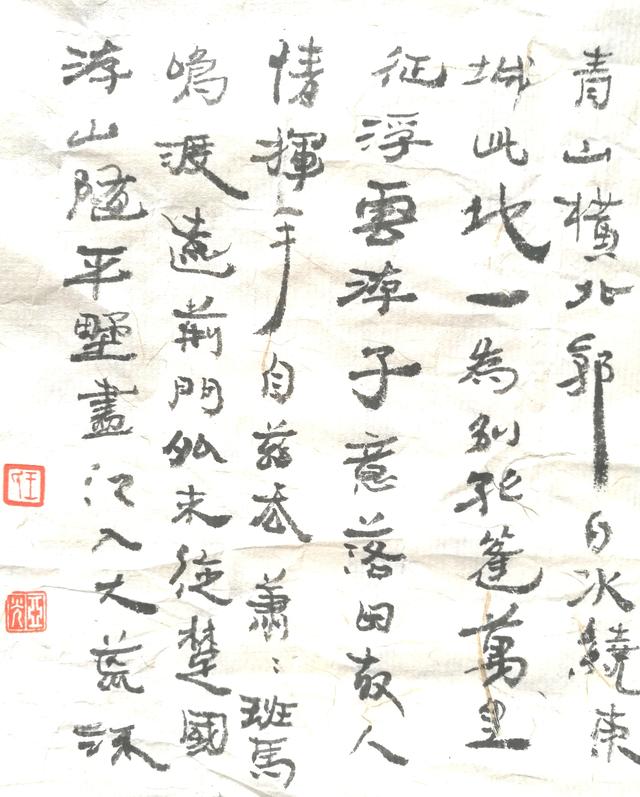 青山橫北郭白水繞東
城此地一為別孤篷萬里
征浮雲游子意落日故人
情揮手自茲去蕭〻班馬
鳴渡遠荊門外來從楚國
游山隨平墅盡江入大荒流
亞光